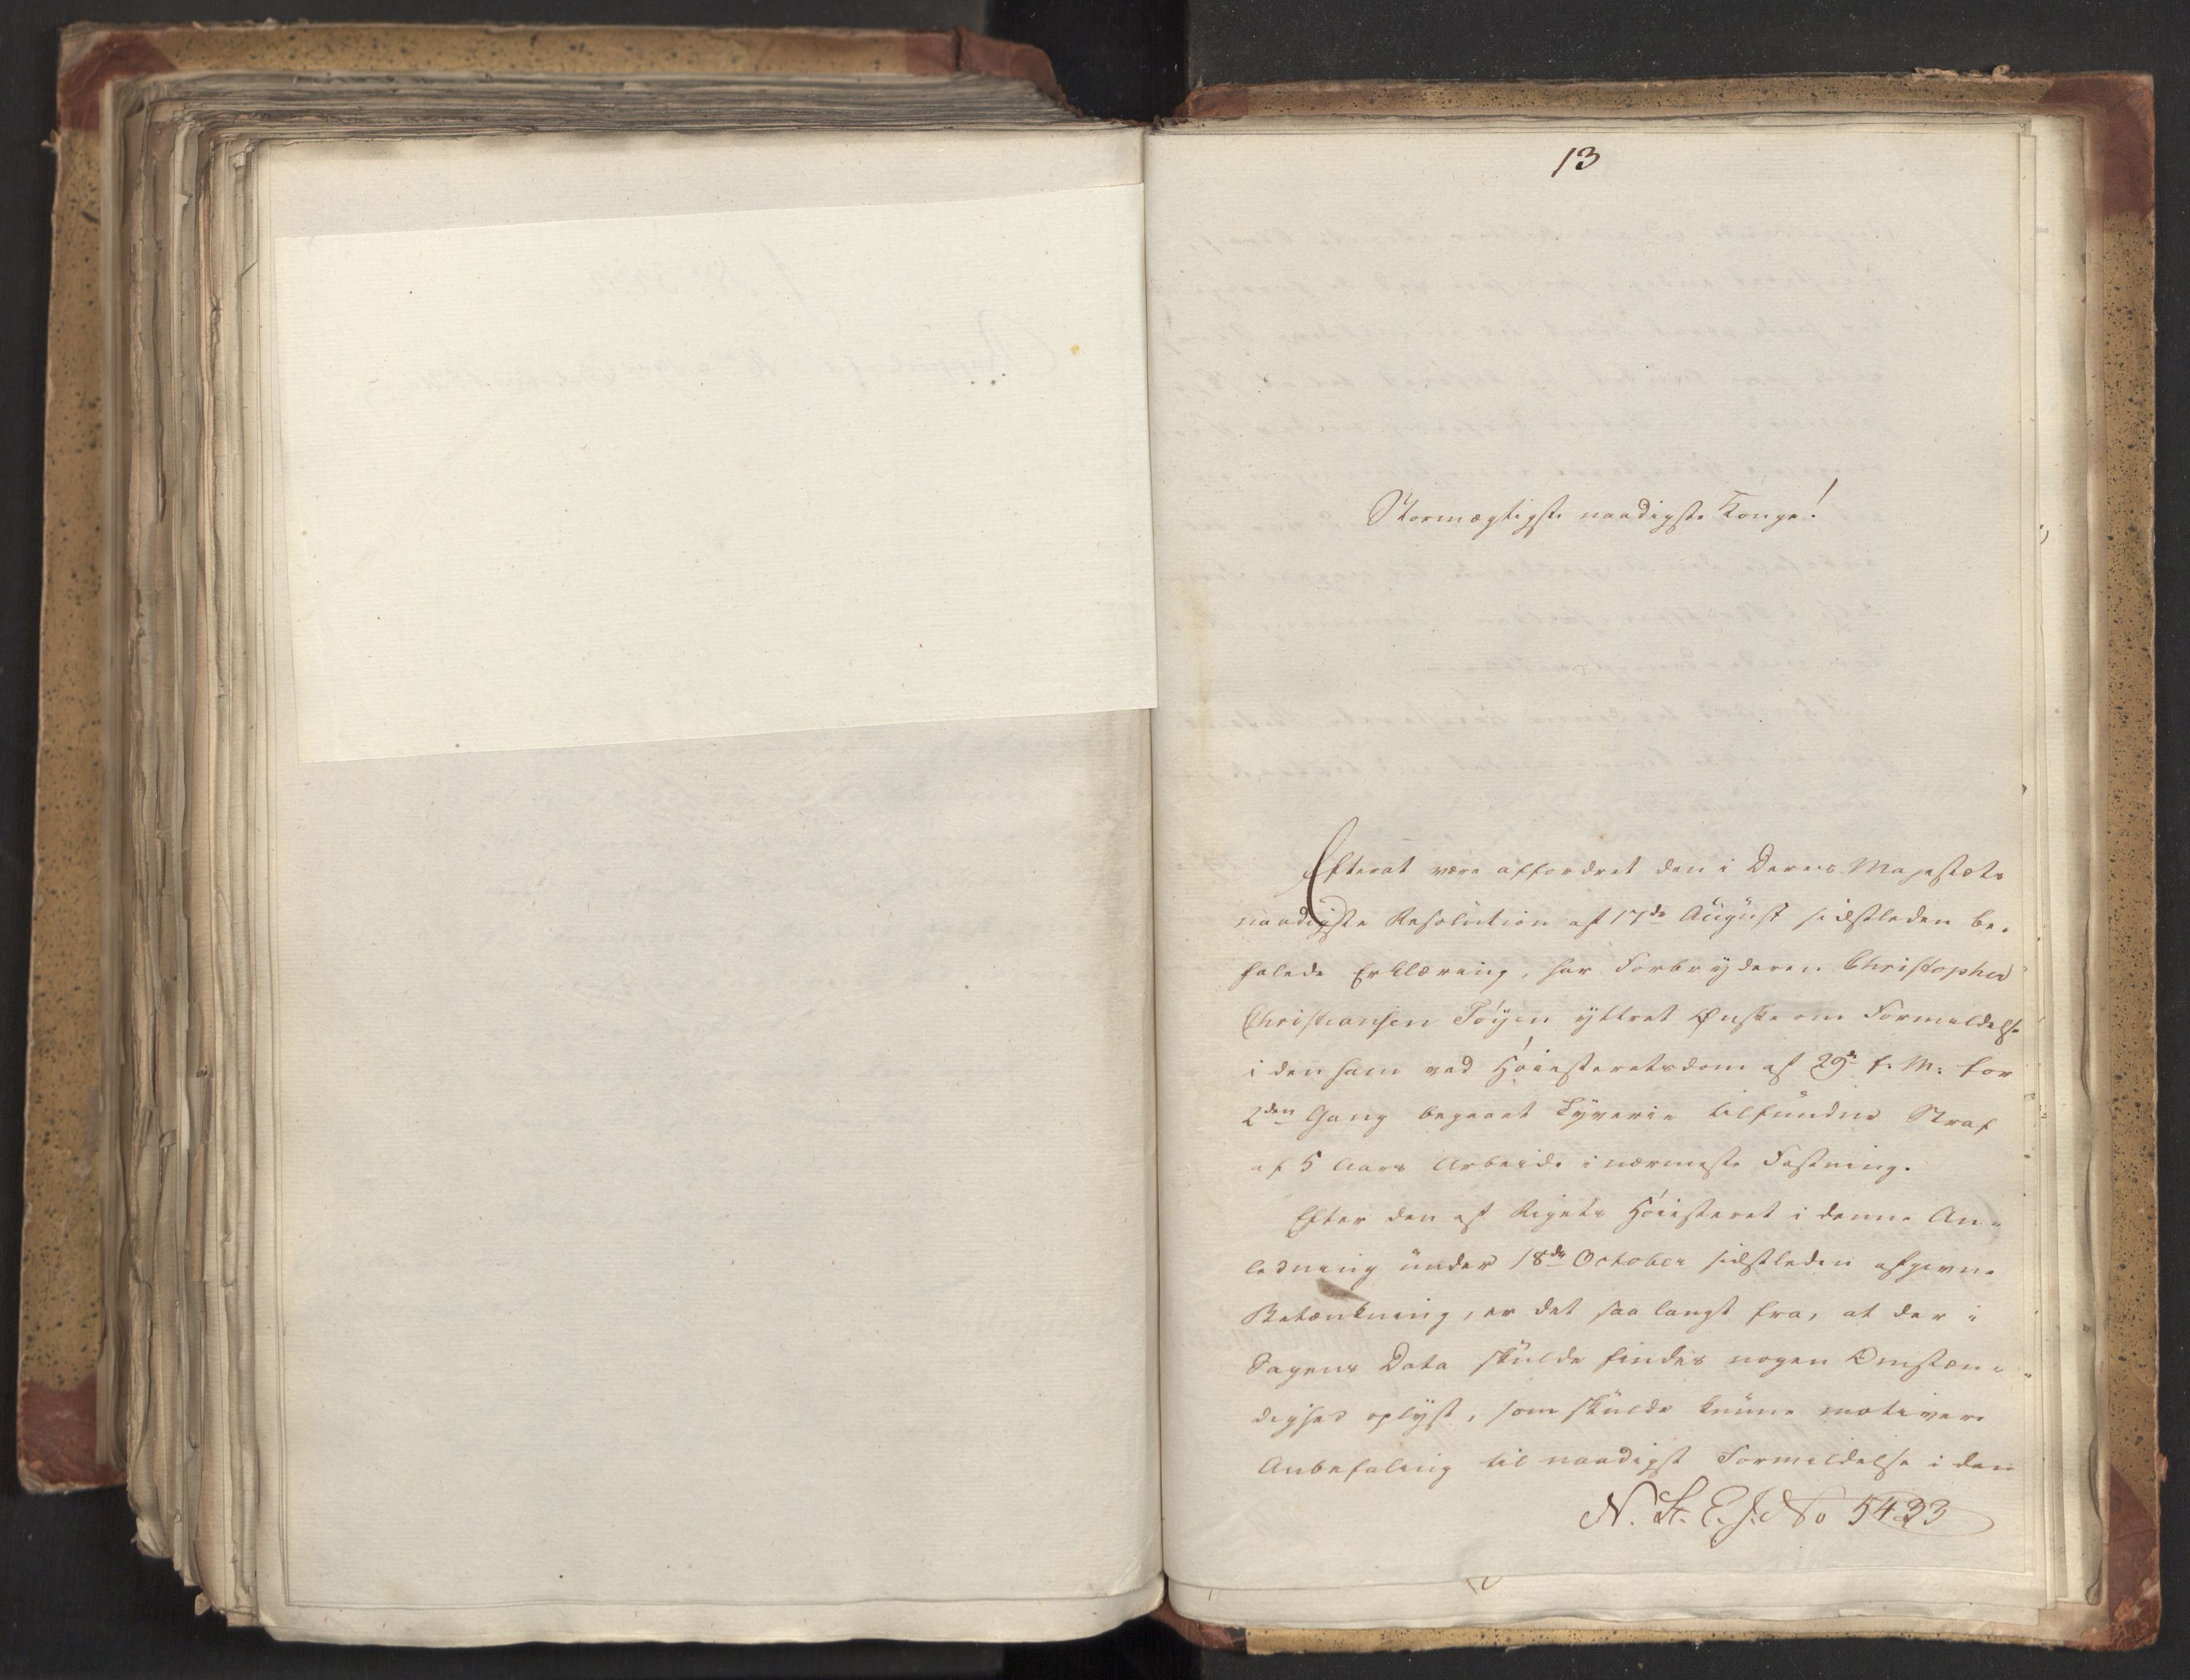 13
Stormægtigste naadigste Konge!
Efterat være affordret den i Deres Majestæts
naadigste Resolution af 17de August sidstleden be-
falede Erklæring, har Forbryderen Christopher
Christiansen Töyen yttret Ønske om Formildelse
i den ham ved Höiesteretsdom af 29de f. M. for
2den Gang begaaet Tyverie tilfundne Straf
af 5 Aars Arbeide i nærmeste Fæstning.
Efter den af Rigets Höiesteret i denne An-
ledning under 18de October sidstleden afgivne
Betænkning, er det saa langt fra, at der i
Sagens Data skulde findes nogen Omstæn-
dighed oplyst, som skulde kunne motivere
Anbefaling til naadigst Formildelse i den
N. St. E. J. No 5423